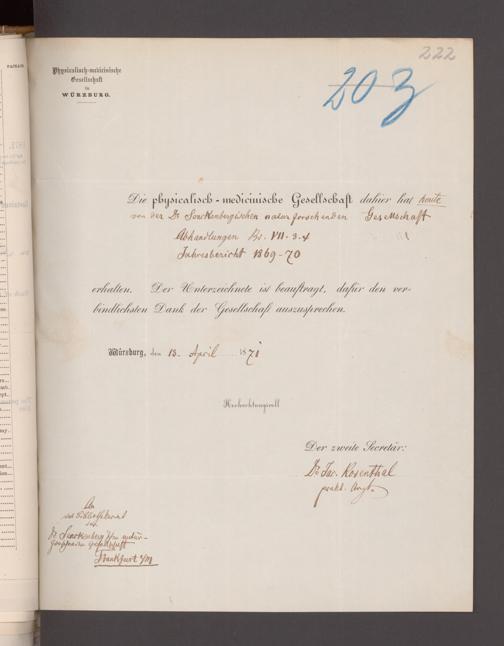 222
203
Physicalisch-medicinische
Gesellschaft
in
WÜRZBURG.
Die physicalisch-medicinische Gesellschaft dahier hat heute
von der Dr Senckenbergischen naturforschenden Gesellschaft
Abhandlungen Bd. VII. 3. 4
Jahresbericht 1869-70
erhalten. Der Unterzeichnete ist beauftragt, dafür den ver-
bindlichsten Dank der Gesellschaft auszusprechen.
Würzburg, den 13. April 1871
Hochachtungsvoll
Der zweite Secretär:
Dr. Rosenthal
prakt. Arzt.
An
der
Dr Senckenberg'schen natur-
forschenden Gesellschaft
Frankfurt a/M